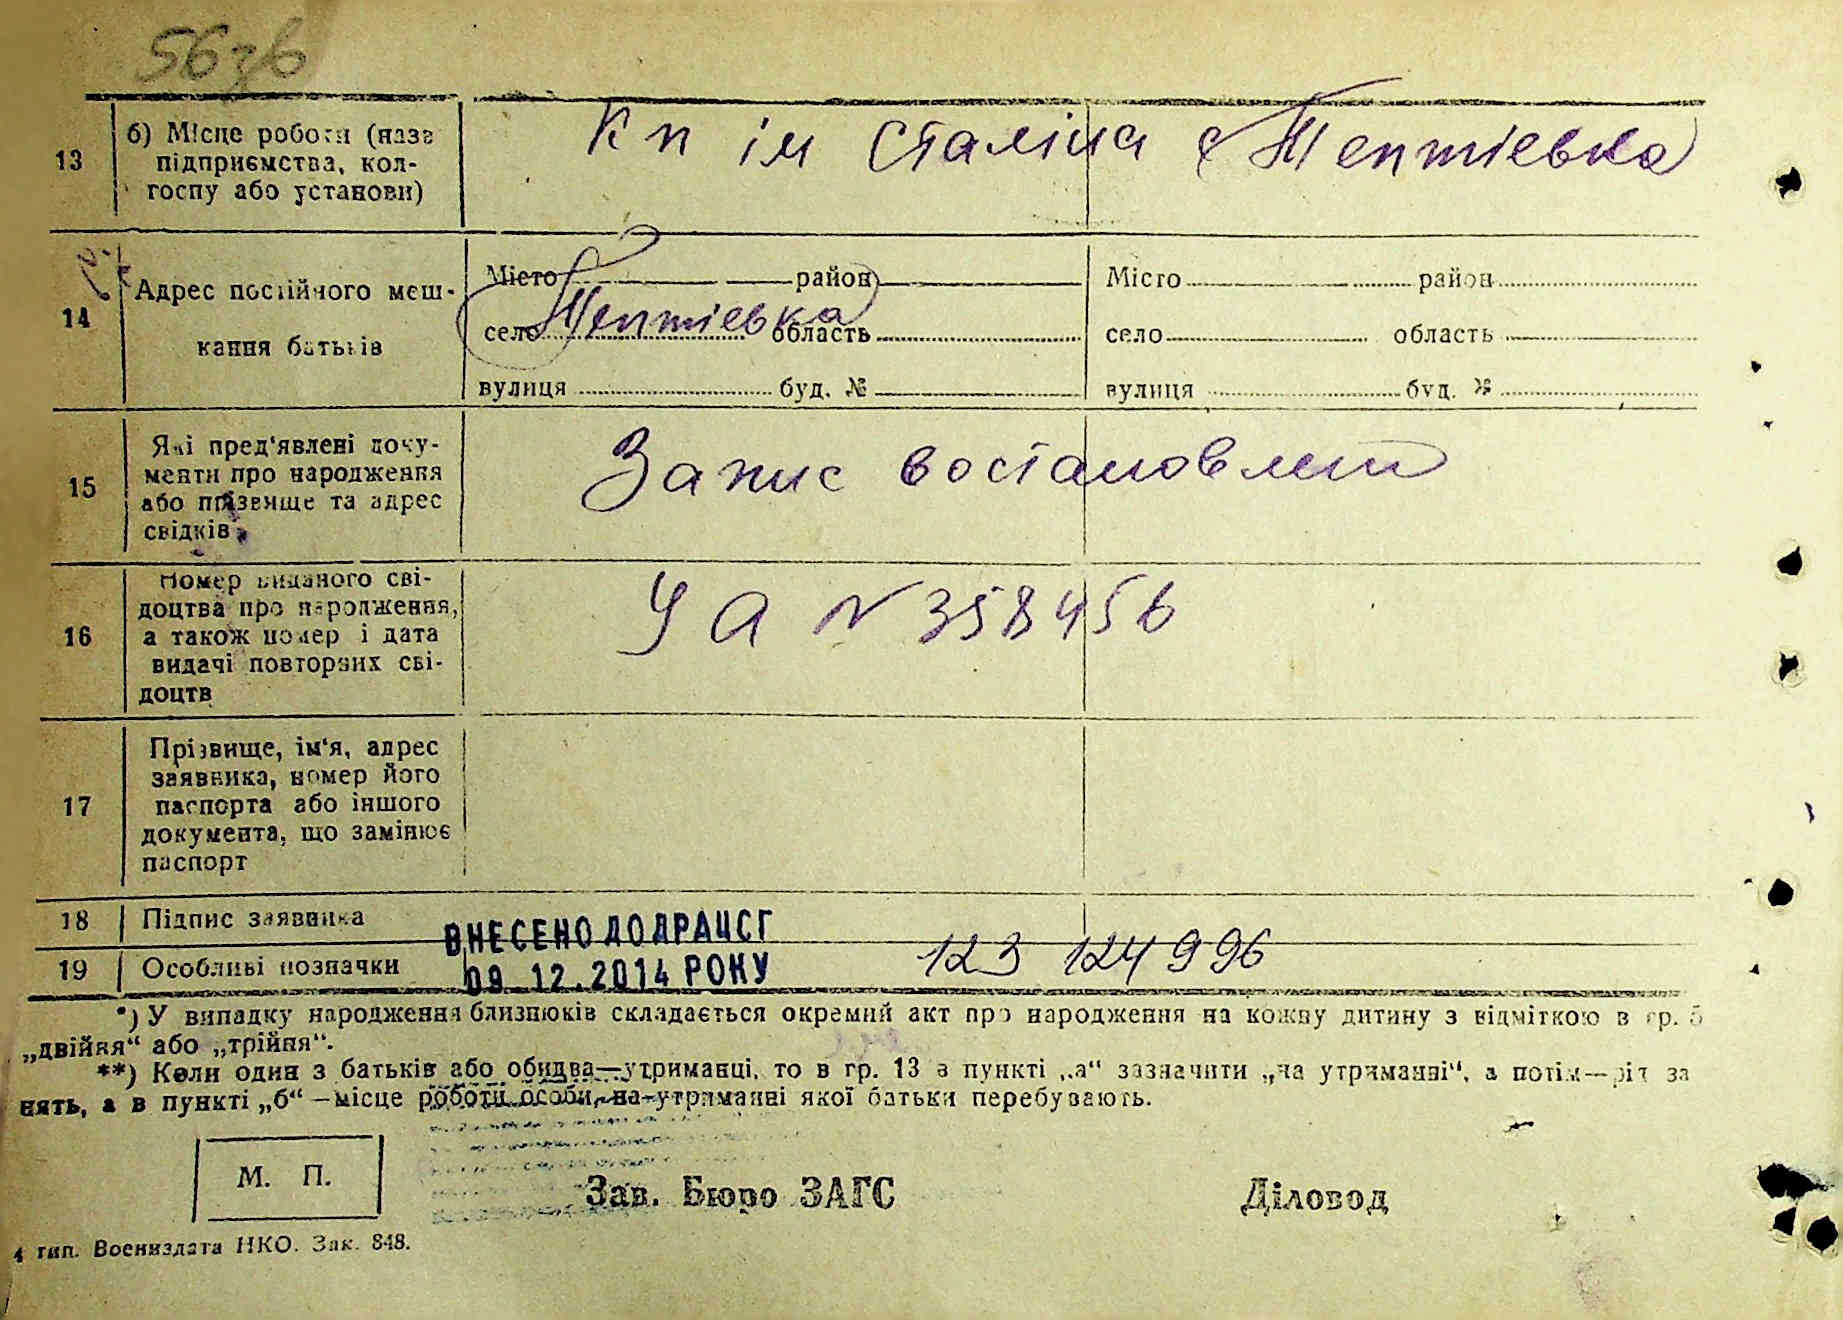 56зв
13
б) Місце роботи (назв
підприємства, кол-
госпу або установи)
Кп ім Сталіна с Тептіевка
14
Адрес постійного меш-
кання батьків
Місто район
село Тептіевка область
вулиця буд. №
Місто район
село область
вулиця буд. №
15
Які пред'явлені доку-
менти про народження
або прізвище та адрес
свідків
Запис востановлен
16
Номер виданого сві-
доцтва про народження,
а також номер і дата
видачі повторних сві-
доцтв
УА № 358456
17
Прізвище, ім'я, адрес
заявника, номер його
паспорта або іншого
документа, що замінює
паспорт
18
Підпис заявника
19
Особливі позначки
ВНЕСЕНО ДО ДРАЦСГ
09.12.2014 РОКУ
123 124996
*) У випадку народження близнюків складається окремий акт про народження на кожну дитину з відміткою в гр. 5
„двійня“ або „трійня“.
**) Коли один з батьків або обидва—утриманці, то в гр. 13 в пункті „а“ зазначити „на утриманні“, а потім—рід за
нять, а в пункті „б“ — місце роботи особи, на утриманні якої батьки перебувають.
М. П.
Зав. Бюро ЗАГС
Діловод
4 тип. Воениздата НКО. Зак. 848.